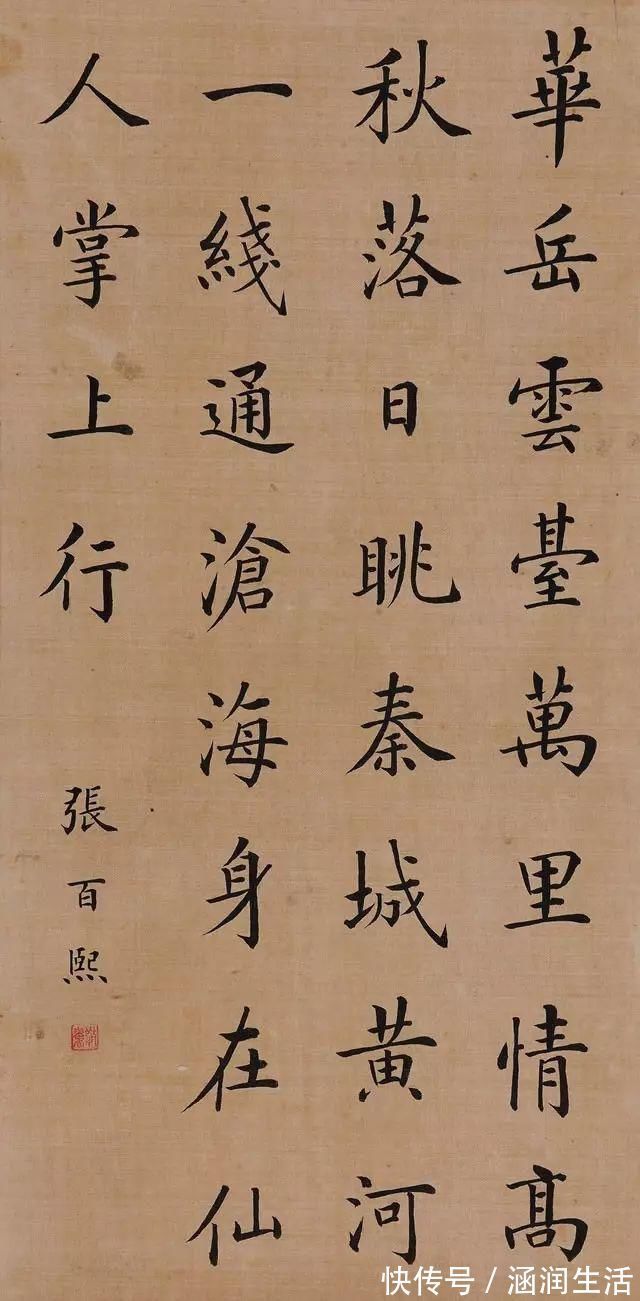 華岳雲臺萬里情高
秋落日眺秦城黄河
一綫通滄海身在仙
人掌上行
張百熙
快传号/涵润生活